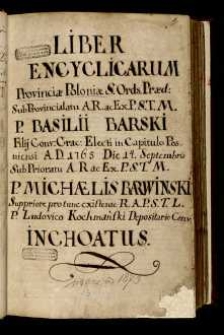 LIBER
ENCYCLICARUM
Provinciæ Poloniæ S. Ordis Præd:
Sub Provincialatu A.R. ac Ex. P.S.T.M.
P. BASILII BARSKI
Filij Conv: Crac: Electi in Capitulo Pos
naniensi A.D. 1765 Die 14. Septembris
Sub Prioratu A.R. ac Ex. P.S.T.M.
P. MICHAËLIS BARWINSKI
Suppriore pro tunc existente R.A.P.S.T.L.
P. Ludovico Kochmański Depositario Conv:
INCHOATUS.